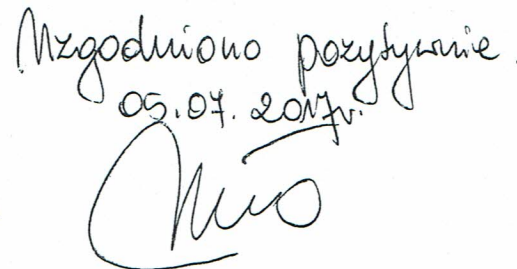 Uzgodniono pozytywnie.
05.07.2017r.